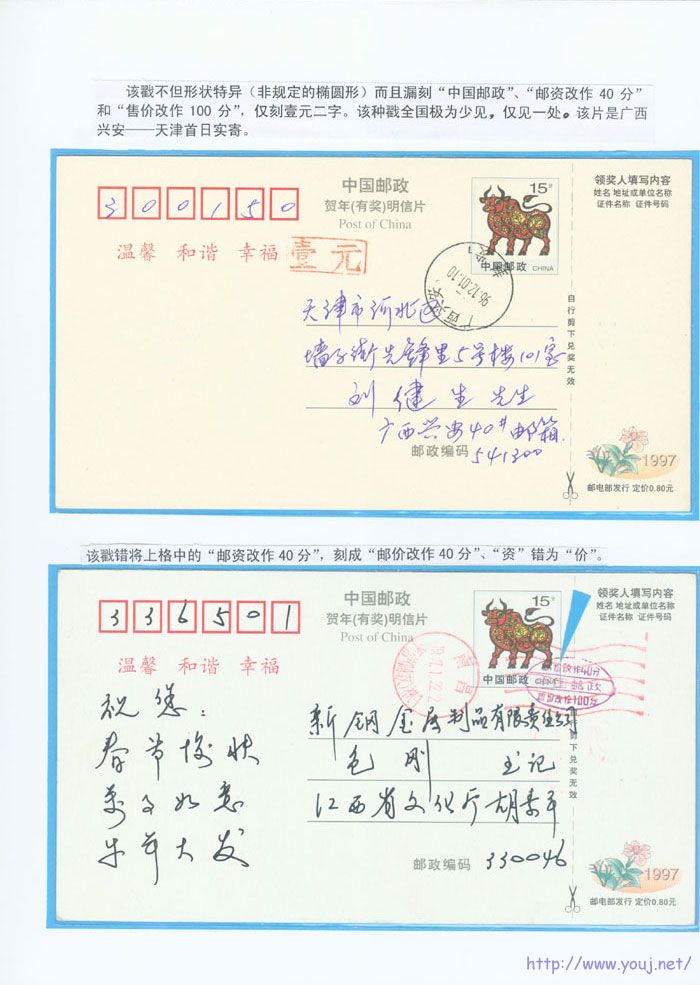 该戳不但形状特异（非规定的椭圆形）而且漏刻“中国邮政”、“邮资改作 40 分”
和“售价改作 100 分”，仅刻壹元二字。该种戳全国极为少见，仅见一处。该片是广西
兴安——天津首日实寄。
300150
中国邮政
贺年(有奖)明信片
Post of China
15分
中国邮政 CHINA
领奖人填写内容
姓名 地址或单位名称
证件名称 证件号码
温馨 和谐 幸福
壹元
96.12.01.10
自行剪下兑奖无效
天津市河北区
墙子街先锋里5号楼101室
刘健生先生
广西兴安40#邮箱
邮政编码
541300
1997
邮电部发行 定价0.80元
该戳错将上格中的“邮资改作 40 分”，刻成“邮价改作 40 分”、“资”错为“价”。
336501
中国邮政
贺年(有奖)明信片
Post of China
15分
中国邮政 CHINA
领奖人填写内容
姓名 地址或单位名称
证件名称 证件号码
温馨 和谐 幸福
南昌
邮价改作40分
中国邮政
售价改作100分
剪下兑奖无效
祝您：
春节愉快
万事如意
牛年大发
新钢金属制品有限责任公司
书记
江西省文化厅胡
邮政编码 330046
1997
邮电部发行 定价0.80元
http://www.youj.net/